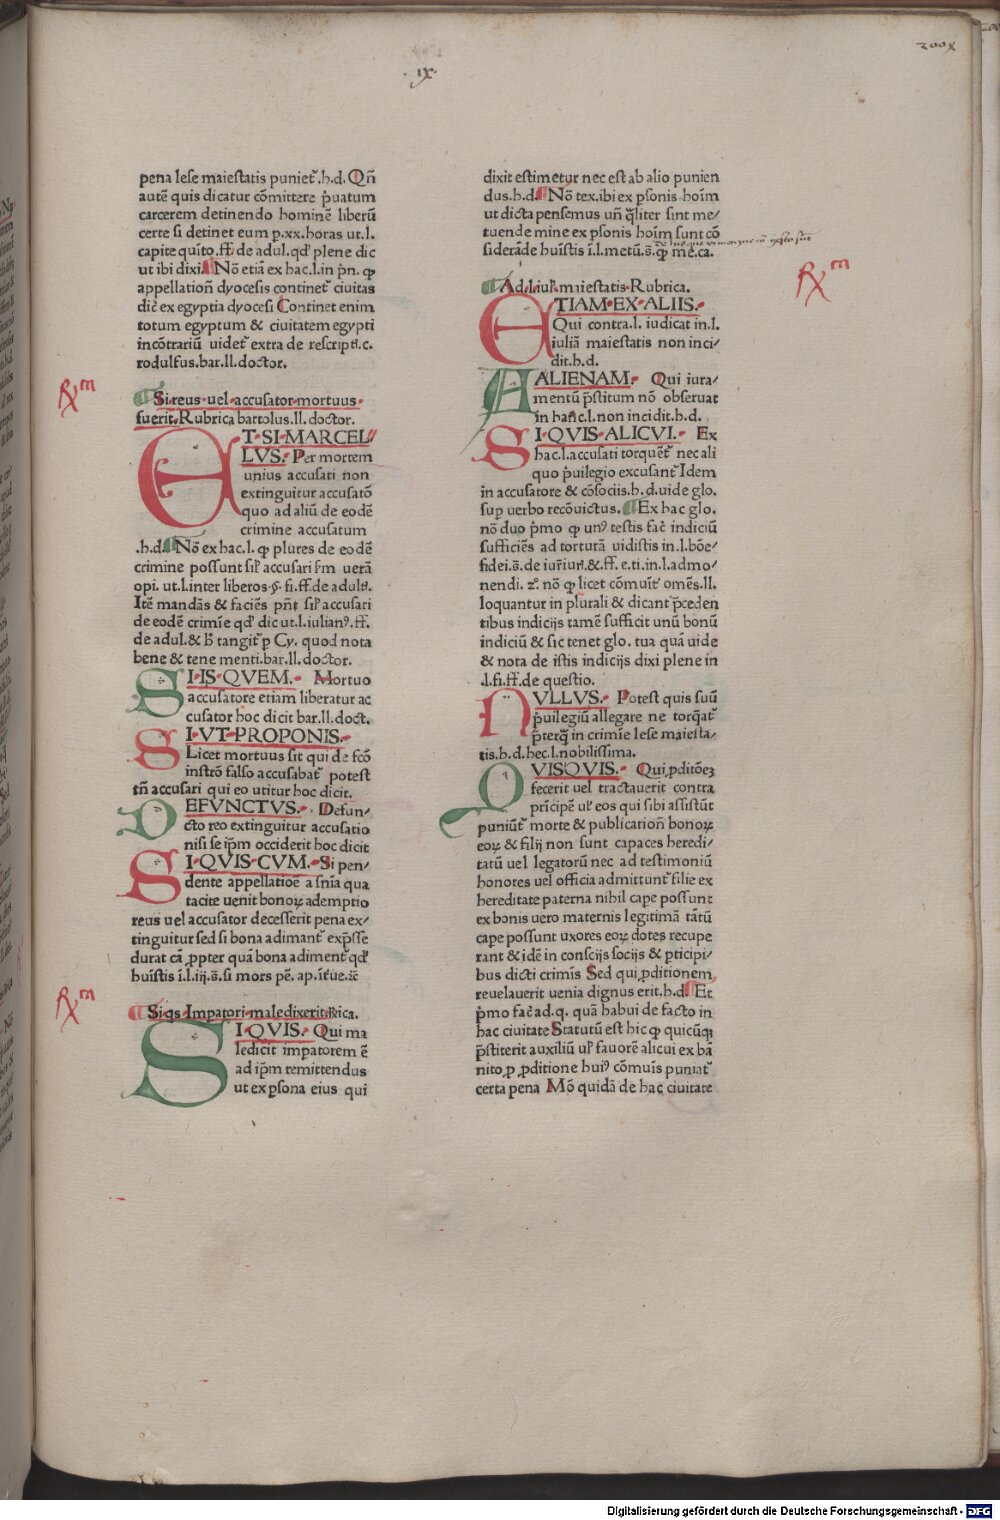 .ix.
pena lese maiestatis puniet᷑.h.d. Qñ
autẽ quis dicatur cõmittere p̃uatum
carcerem detinendo hominẽ liberũ
certe si detinet eum p.xx.horas ut.l.
capite quĩto.ff.de adul.qd̕ plene dic
ut ibi dixi. Nõ etiã ex hac.l.in p̃n. ꝙ
appellatioñ dyocesis continet᷑ ciuitas
dic̃ ex egyptia dyocesi Continet enim
totum egyptum & ciuitatem egypti
incõtrariũ uidet᷑ extra de rescript̃.c.
rodulfus.bar.ll.doctor.
Si reus uel accusator mortuus
fuerit. Rubrica bartolus.ll.doctor.
ET SI MARCEL/
LVS. Per mortem
unius accusati non
extinguitur accusatõ
quo ad aliũ de eodẽ
crimine accusatum
.h.d. Nõ ex hac.l. ꝙ plures de eodẽ
crimine possunt sil̕ accusari s̃m uerã
opi. ut.l.inter liberos.§.fi.ff.de adult̃.
Itẽ mandãs & faciẽs p̃nt sil̕ accusari
de eodẽ crimĩe qd̕ dic ut.l.iulianꝰ.ff.
de adul.& b̃ tangit᷑ p Cy. quod nota
bene & tene menti.bar.ll.doctor.
SI IS QVEM. Mortuo
accusatore etiam liberatur ac
cusator hoc dicit bar.ll.doct.
SI VT PROPONIS.
Licet mortuus sit qui de fcõ
instrõ falso accusabat᷑ potest
tñ accusari qui eo utitur hoc dicit.
DEFVNCTVS. Defun/
cto reo extinguitur accusatio
nisi se ip̃m occiderit hoc dicit
SI QVIS CVM. Si pen/
dente appellatiõe a snĩa qua
tacite uenit bonoꝝ ademptio
reus uel accusator decesserit pena ex/
tinguitur sed si bona adimant᷑ exp̃sse
durat cã ꝓpter quã bona adiment᷑ qd̕
huĩstis ĩ.l.iij.s̃.si mors pẽ. ap.ĩt̃ue.ac̃
Siq̃s Impatori maledixerit. Rica.
SI QVIS. Qui ma
ledicit impatorem ẽ
ad ip̃m remittendus
ut ex p̱sona eius qui
dixit estimetur nec est ab alio punien
dus.h.d. Nõ tex.ibi ex p̱sonis hoĩm
ut dicta pensemus uñ q̃liter sint me/
tuende mine ex p̱sonis hoĩm sunt cõ
siderãde huĩstis ĩ.l.metũ.s̃.ꝙ me.ca.
Ad.l.iul̕.maiestatis Rubrica.
ETIAM EX ALIIS.
Qui contra.l. iudicat in.l.
iuliã maiestatis non inci/
dit.h.d.
ALIENAM. Qui iura/
mentũ p̃stitum nõ obseruat
in hanc.l.non incidit.h.d.
SI QVIS ALICVI. Ex
hac.l.accusati torquẽt᷑ nec ali
quo p̃uilegio excusant᷑ Idem
in accusatore & cõsociis.h.d.uide glo.
sup uerbo recõuictus. Ex hac glo.
nõ duo p̃mo ꝙ unꝰ testis fac̃ indiciũ
sufficiẽs ad torturã uidistis in.l.bõe/
fidei.s̃.de iur̃iur̃.&.ff.e.ti.in.l.admo/
nendi. zº. nõ ꝙ licet cõmuĩt᷑ omẽs.ll.
loquantur in plurali & dicant p̃ceden
tibus indicijs tamẽ sufficit unũ bonũ
indiciũ & sic tenet glo. tua quã uide
& nota de istis indicijs dixi plene in
.l.fi.ff.de questio.
NVLLVS. Potest quis suũ
p̃uilegiũ allegare ne torq̃at᷑
p̃terq̃ in crimĩe lese maiesta/
tis.h.d.hec.l.nobilissima.
QVISQVIS. Qui ꝓditõeꝫ
fecerit uel tractauerit contra
prĩcipẽ ul̕ eos qui sibi assistũt
puniũt᷑ morte & publicatioñ bonoꝝ
eoꝝ & filij non sunt capaces heredi/
tatũ uel legatorũ nec ad testimoniũ
honores uel officia admittunt᷑ filie ex
hereditate paterna nihil cape possunt
ex bonis uero maternis legitimã tãtũ
cape possunt uxores eoꝝ dotes recupe
rant & idẽ in conscijs socijs & p̱ticipi/
bus dicti crimĩs Sed qui ꝓditionem
reuelauerit uenia dignus erit.h.d. Et
p̃mo fac̃ ad.q. quã habui de facto in
hac ciuitate Statutũ est hic ꝙ quicũqꝫ
p̃stiterit auxiliũ ul̕ fauorẽ alicui ex bã
nito ꝓ ꝓditione huiꝰ cõmuĩs puniat᷑
certa pena Mõ quidã de hac ciuitate